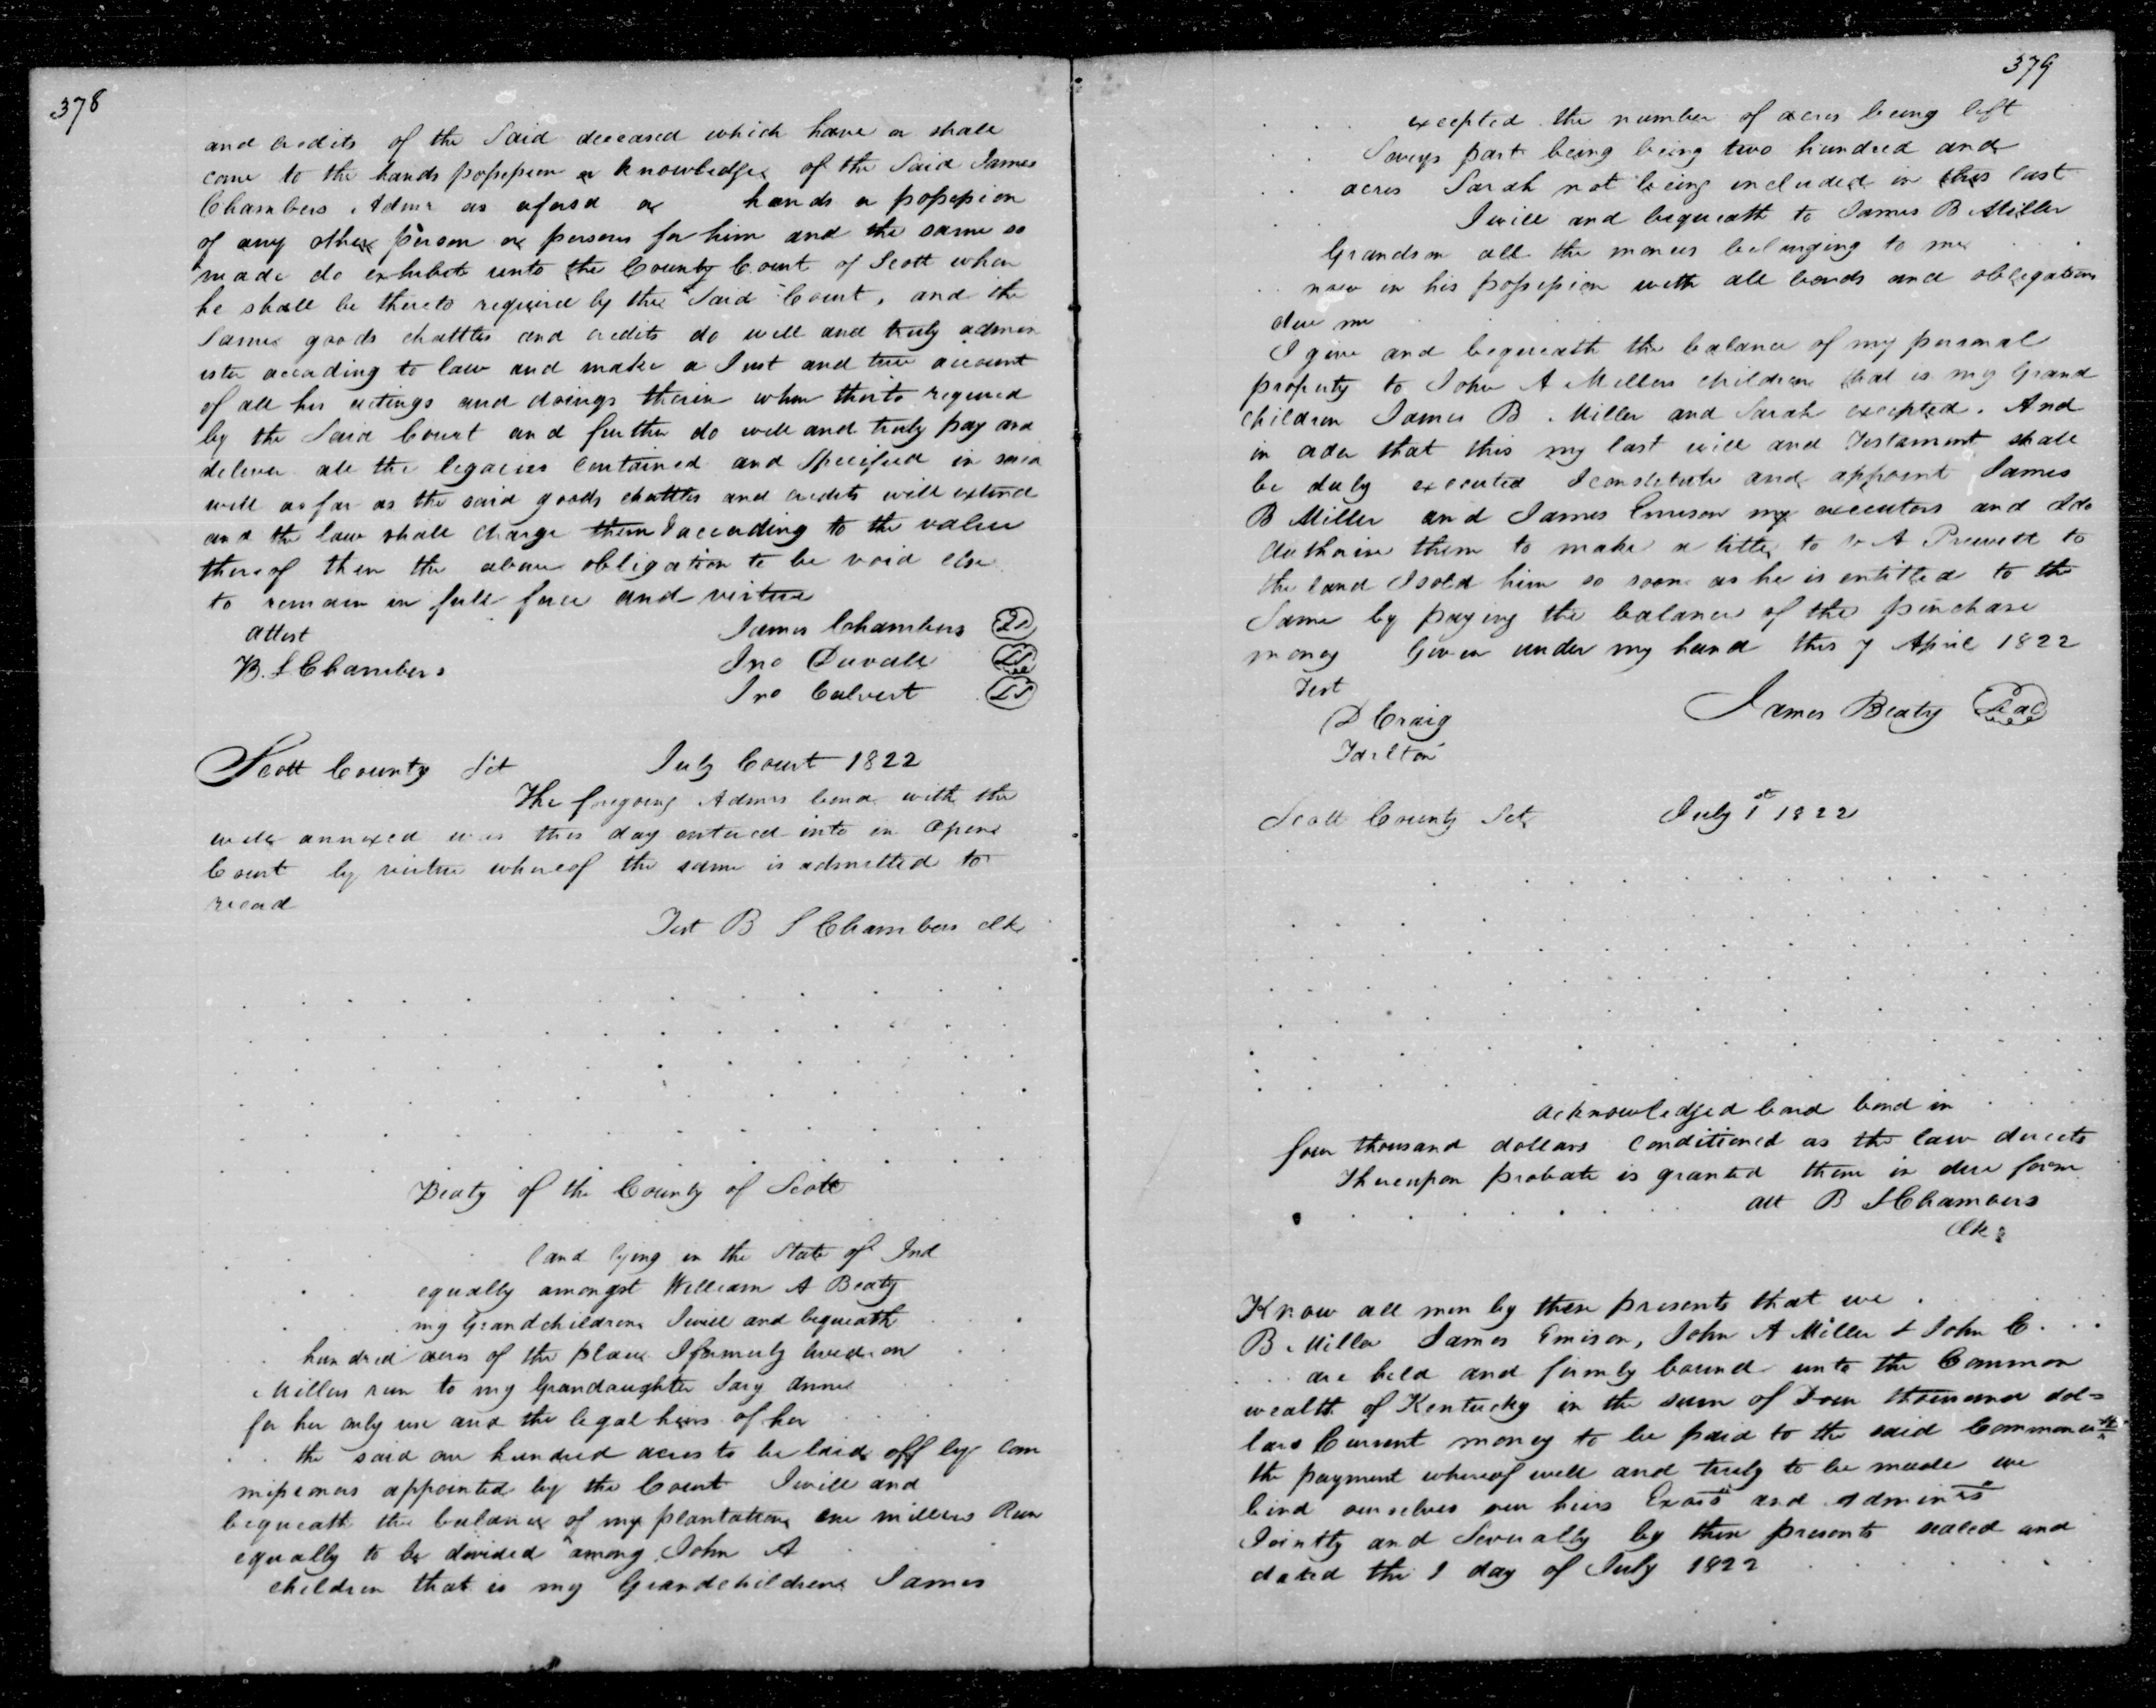 378
and credits of the Said deceased which have or shall
come to the hands possession or knowledge of the Said James
Chambers Admr as afosd or hands or possession
of any other person or persons for him and the same so
made do exhibit unto the County Court of Scott when
he shall be thereto required by the Said Court, and the
Same goods chattles and credits do well and truly admin
ister according to law and make a Just and true account
of all his actings and doings therin when therto required
by the Said Court and further do well and truly pay and
deliver all the legacies contained and Specified in said
will as far as the said goods chattles and credits will extend
and the law shall charge them according to the value
thereof then the above obligation to be void else
to remain in full force and virtue
attest James Chambers
B. S Chambers Jno Duvall
Jno Calvert
Scott County Sct July Court 1822
The foregoing Admrs bond with the
will annexed was this day entered into in open
Court by virtue whereof the same is admitted to
record
Test B S Chambers clk
Beaty of the County of Scott
land lying in the State of Ind
equally amongst William A Beaty
my Grandchildren I will and bequeath
hundred acres of the place I formerly lived on
Millers run to my Grandaughter Sary Anne
for her only use and the legal heirs of her
the said one hundred acres to be laid off by com
missioners appointed by the Court I will and
bequeath the balance of my plantation on millers Run
equally to be divided among John A
children that is my Grandchildren James
379
excepted the number of acres being left
Sarys part being being two hundred and
acres Sarah not being included in this last
I will and bequeath to James B Miller
Grandson all the monies belonging to me
now in his possession with all bonds and obligations
due me
I give and bequeath the balance of my personal
property to John A Millers children that is my Grand
children James B. Miller and Sarah excepted. And
in order that this my last will and Testament shall
be duly executed I constitute and appoint James
B Miller and James Emison my executors and I do
Authorise them to make a title to A Prewett to
the land I sold him so soon as he is entitled to the
Same by paying the balance of the purchase
money Given under my hand this 7 April 1822
Test
D Craig James Beaty Seal
Tarlton
Scott County Sct July 1st 1822
acknowledged bond bond in
four thousand dollars conditioned as the law directs
Thereupon probate is granted them in due form
att B S Chambers
clk
Know all men by these presents that we
B Miller James Emison, John A Miller & John C.
are held and firmly bound unto the Common
wealth of Kentucky in the sum of Four thousand dol=
lars Current money to be paid to the said Commonwth
the payment whereof well and truly to be made we
bind ourselves our heirs Exors and Adminrs
Jointly and Severally by these presents sealed and
dated the 1 day of July 1822